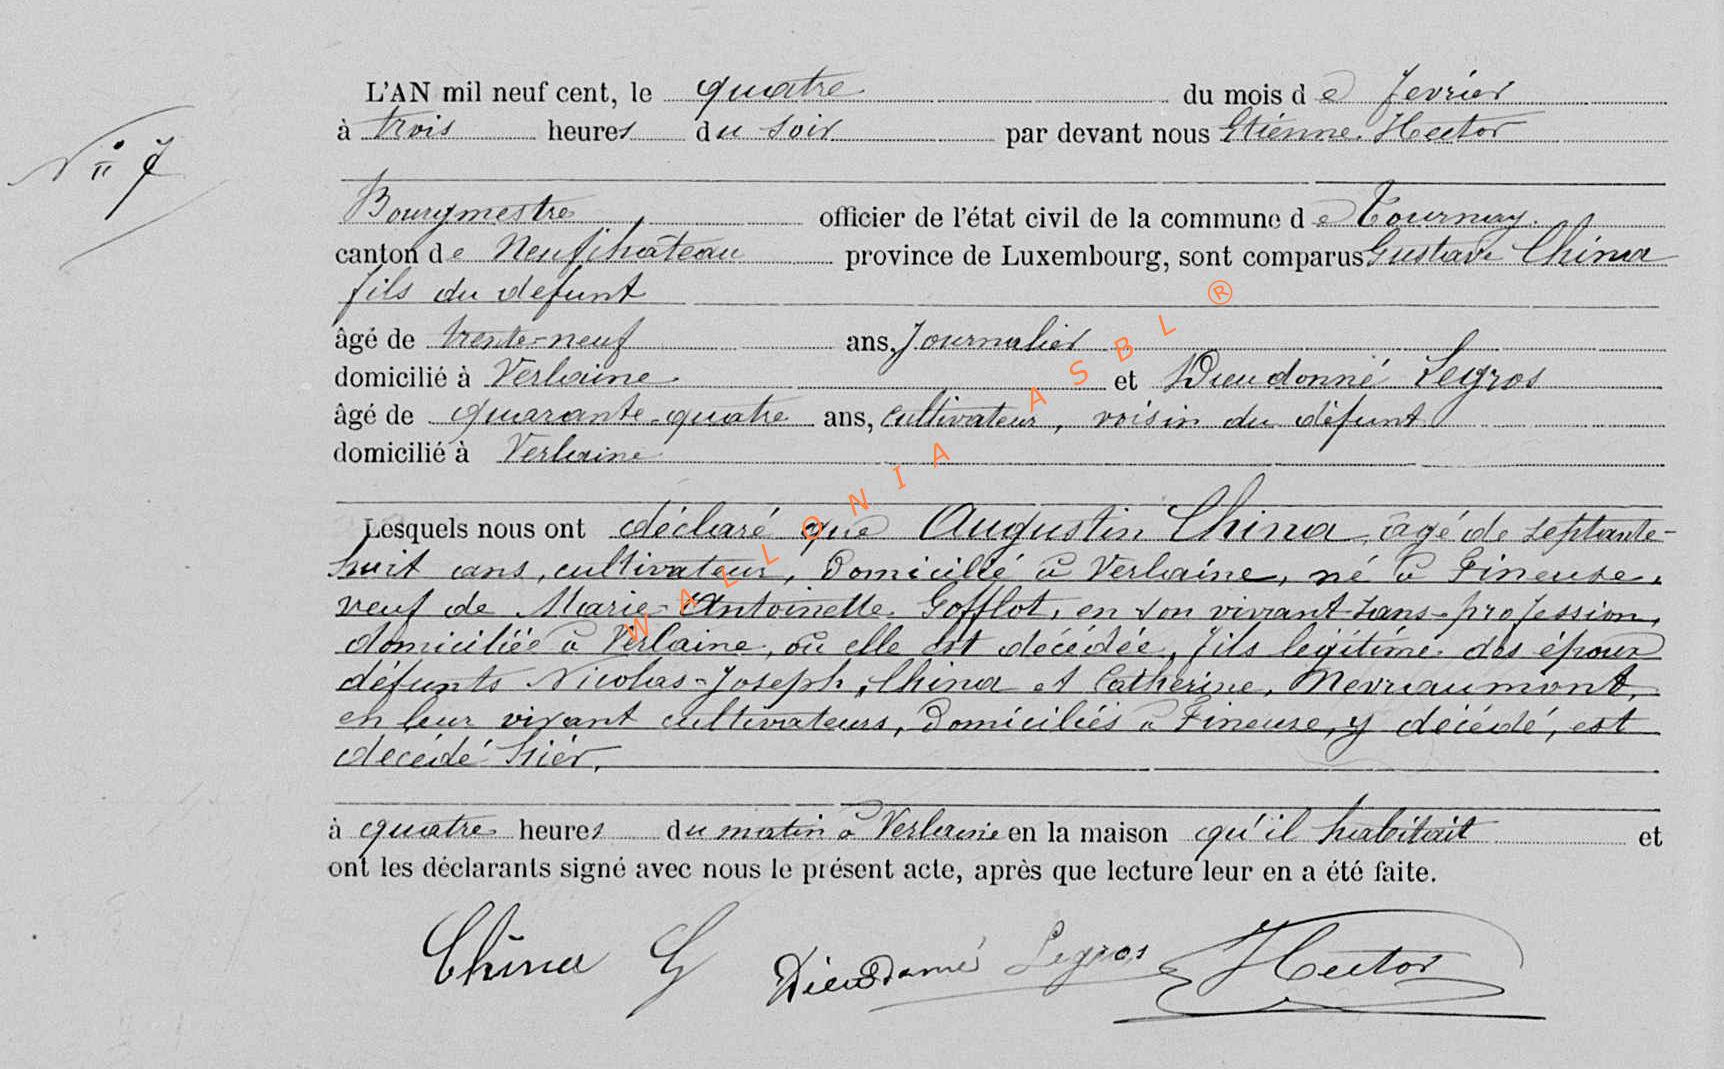 L'AN mil neuf cent, le quatre du mois de fevrier
N° 7
à trois heures du soir par devant nous Etienne Hector
Bourgmestre officier de l'état civil de la commune de Tournay.
canton de Neufchâteau province de Luxembourg, sont comparus Gustave China
fils du defunt
âgé de trente-neuf ans, Journalier
domicilié à Verlaine et Dieudonné Legros
âgé de quarante-quatre ans, cultivateur, voisin du défunt
domicilié à Verlaine
Lesquels nous ont déclaré que Augustin China, âgé de septante-
huit ans, cultivateur, Domicilié à Verlaine, né à Fineuse,
veuf de Marie-Antoinette Gofflot, en son vivant sans-profession,
domiciliée à Verlaine, où elle est décédée, fils légitime des époux
défunts Nicolas-Joseph, China et Catherine, Nevraumont,
en leur vivant cultivateurs, Domiciliés à Fineuse, y décédé, est
decédé hier,
à quatre heures du matin à Verlaine en la maison qu'il habitait et
ont les déclarants signé avec nous le présent acte, après que lecture leur en a été faite.
China G Dieudonné Legros Hector
WALLONIA ASBL ®